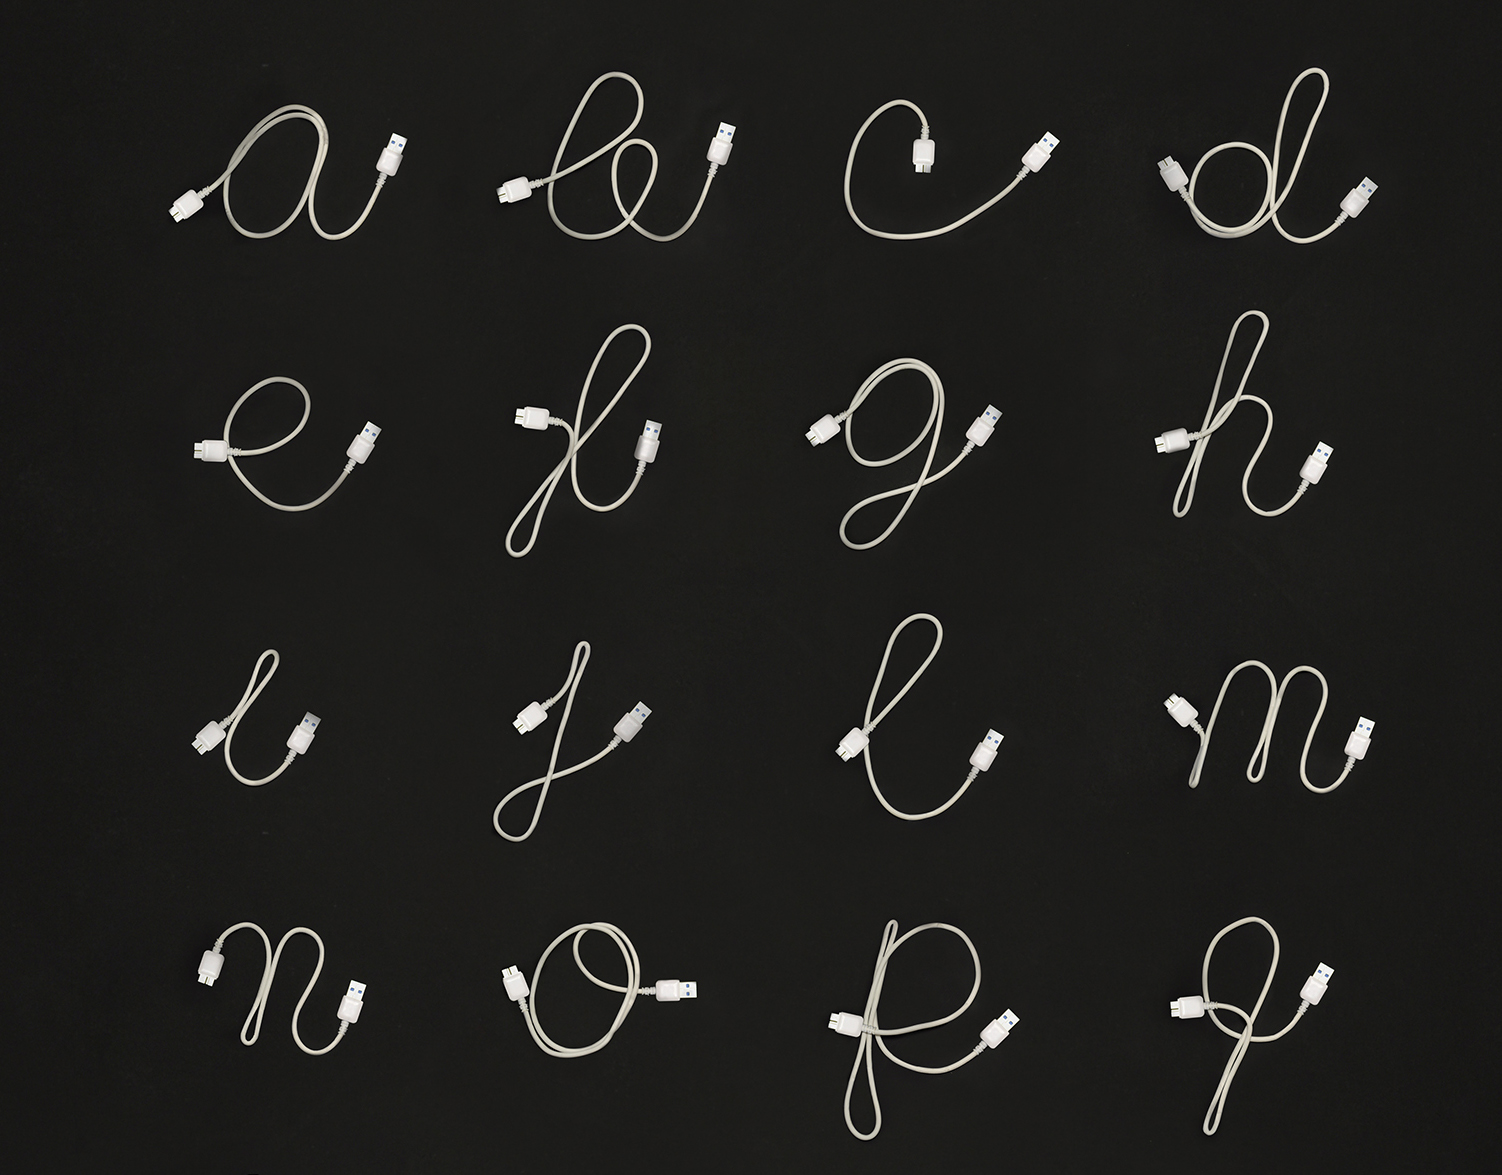 a b c d
e f g h
i j l m
n o p q